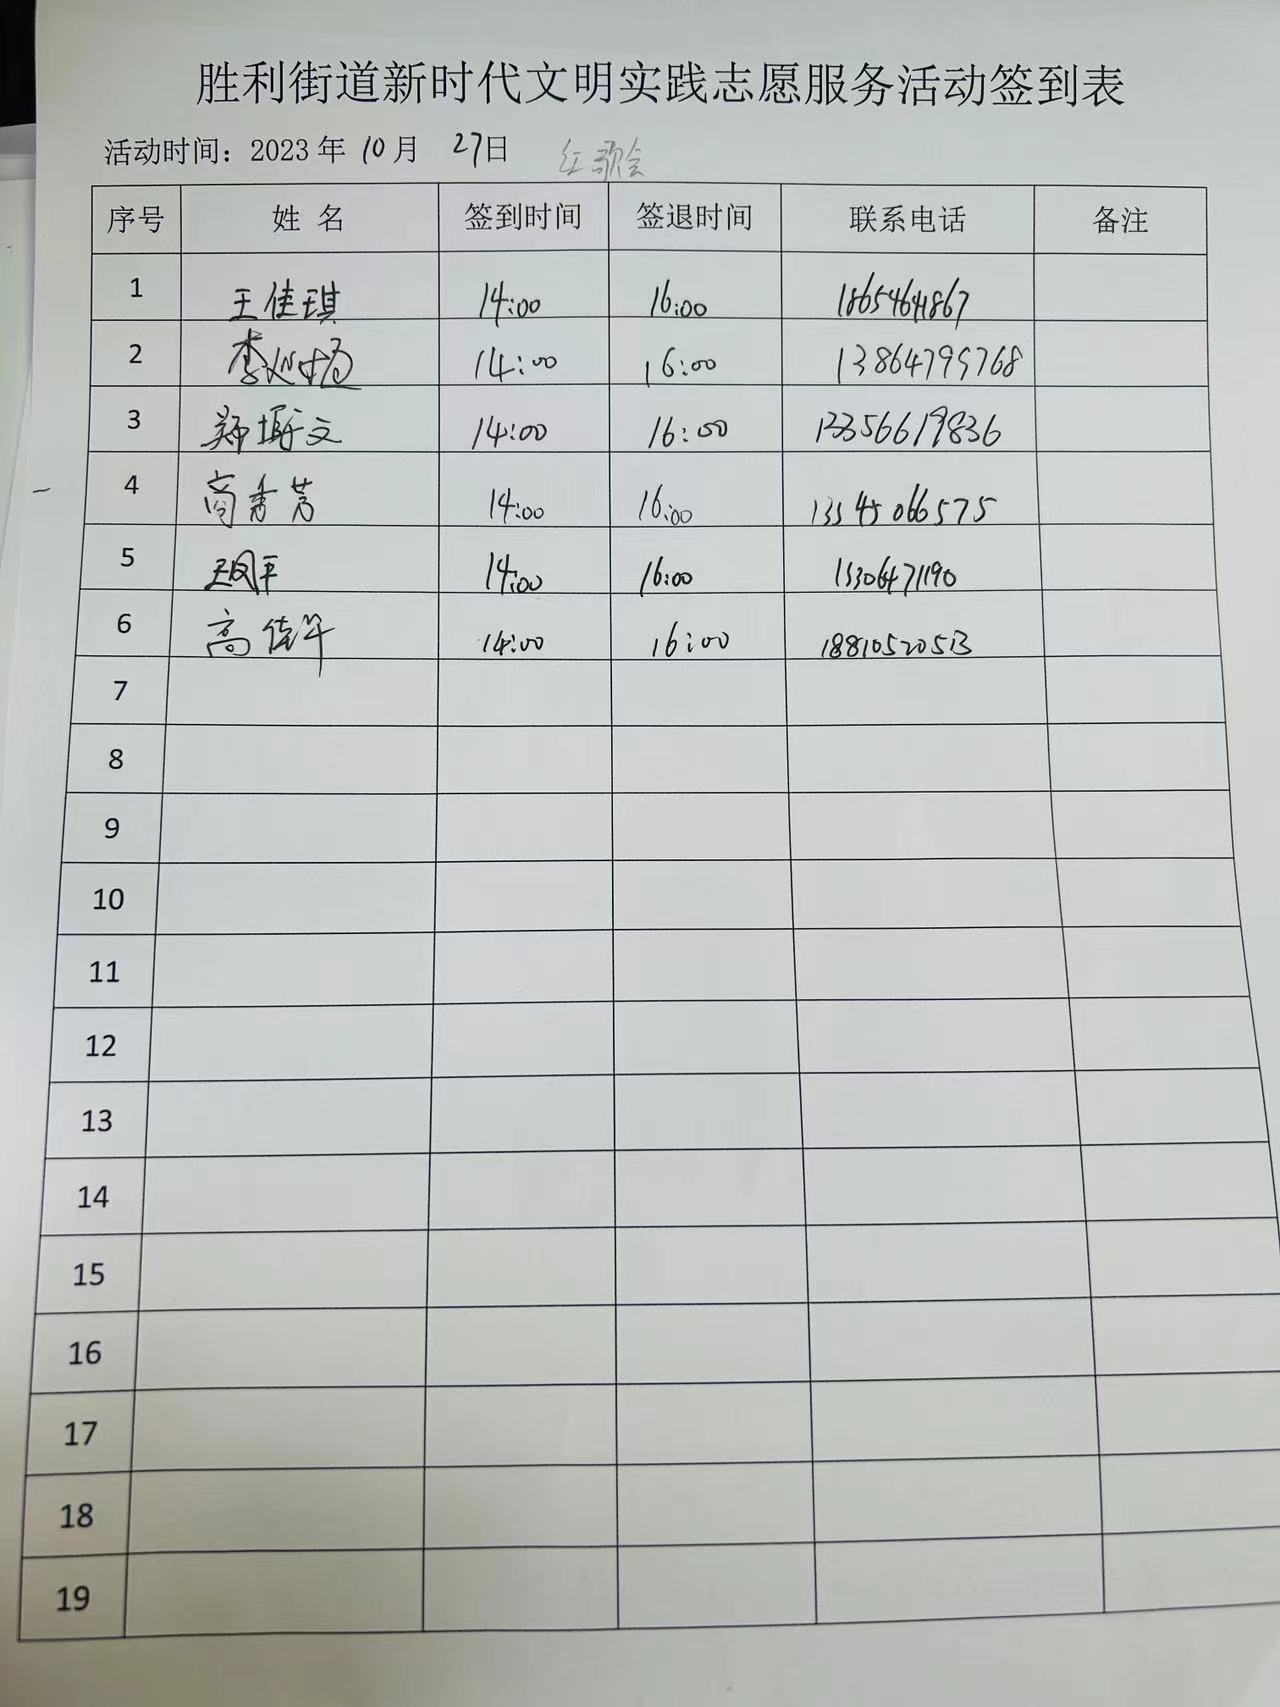 胜利街道新时代文明实践志愿服务活动签到表
活动时间：2023 年 10 月 27日 红歌会
序号 姓 名 签到时间 签退时间 联系电话 备注
1 王佳琪 14:00 16:00 18654641867
2 14:00 16:00 13864795768
3 郑堉文 14:00 16:00 13356619836
4 高秀芳 14:00 16:00
5 王凤平 14:00 16:00 13306471190
6 14:00 16:00 18810520513
7
8
9
10
11
12
13
14
15
16
17
18
19